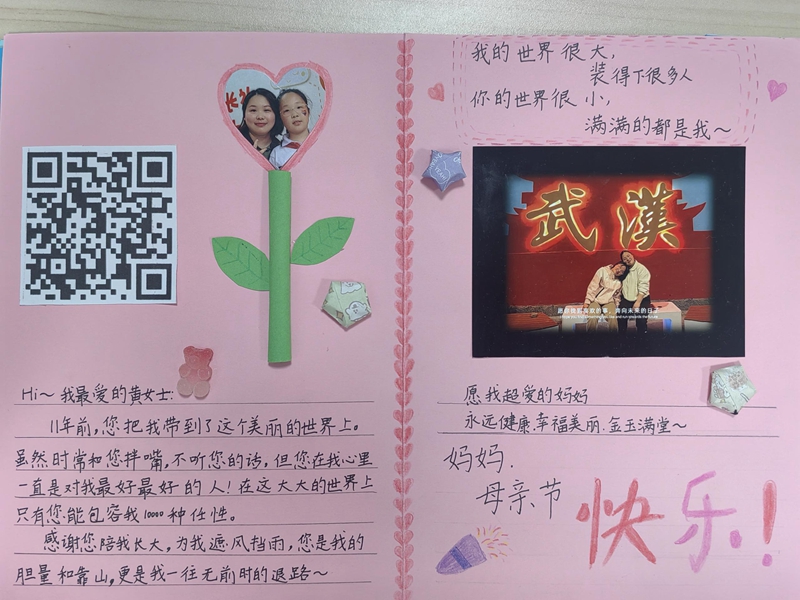 Hi～我最爱的黄女士:
11年前,您把我带到了这个美丽的世界上。
虽然时常和您拌嘴,不听您的话,但您在我心里
一直是对我最好最好的人!在这大大的世界上
只有您能包容我10000种任性。
感谢您陪我长大,为我遮风挡雨,您是我的
胆量和靠山,更是我一往无前时的退路～
我的世界很大,
装得下很多人
你的世界很小,
满满的都是我～
武漢
愿我超爱的妈妈
永远健康.幸福美丽.金玉满堂～
妈妈.
母亲节
快乐!